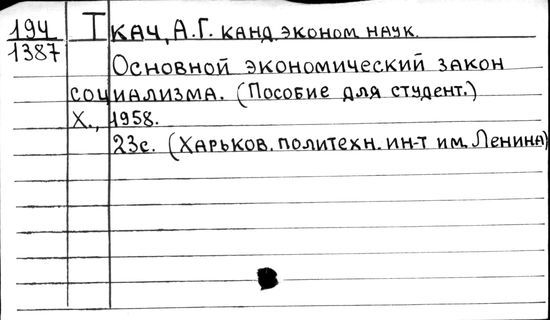 194 Ткач, А.Г. канд. эконом наук.
1387
Основной экономический закон
социализма. (Пособие для студент.)
Х., 1958.
23с. (Харьков. политехн. ин-т им. Ленина)